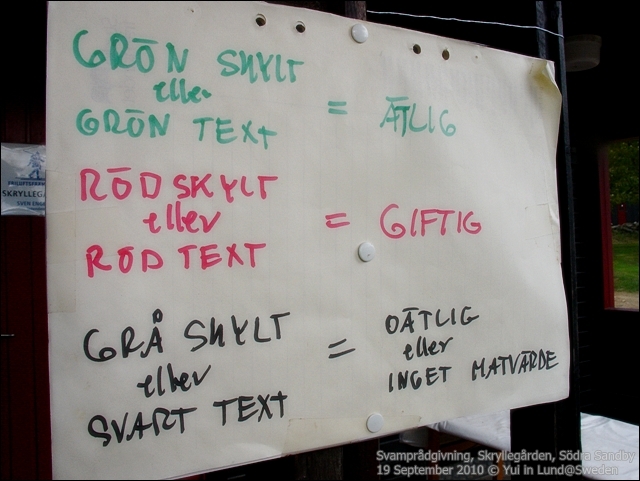 GRÖN SKYLT
eller
GRÖN TEXT
=
ÄTLIG
RÖD SKYLT
eller
RÖD TEXT
=
GIFTIG
GRÅ SKYLT
eller
SVART TEXT
=
OÄTLIG
eller
INGET MATVÄRDE
Svamprådgivning, Skryllegården, Södra Sandby
19 September 2010 © Yui in Lund@Sweden